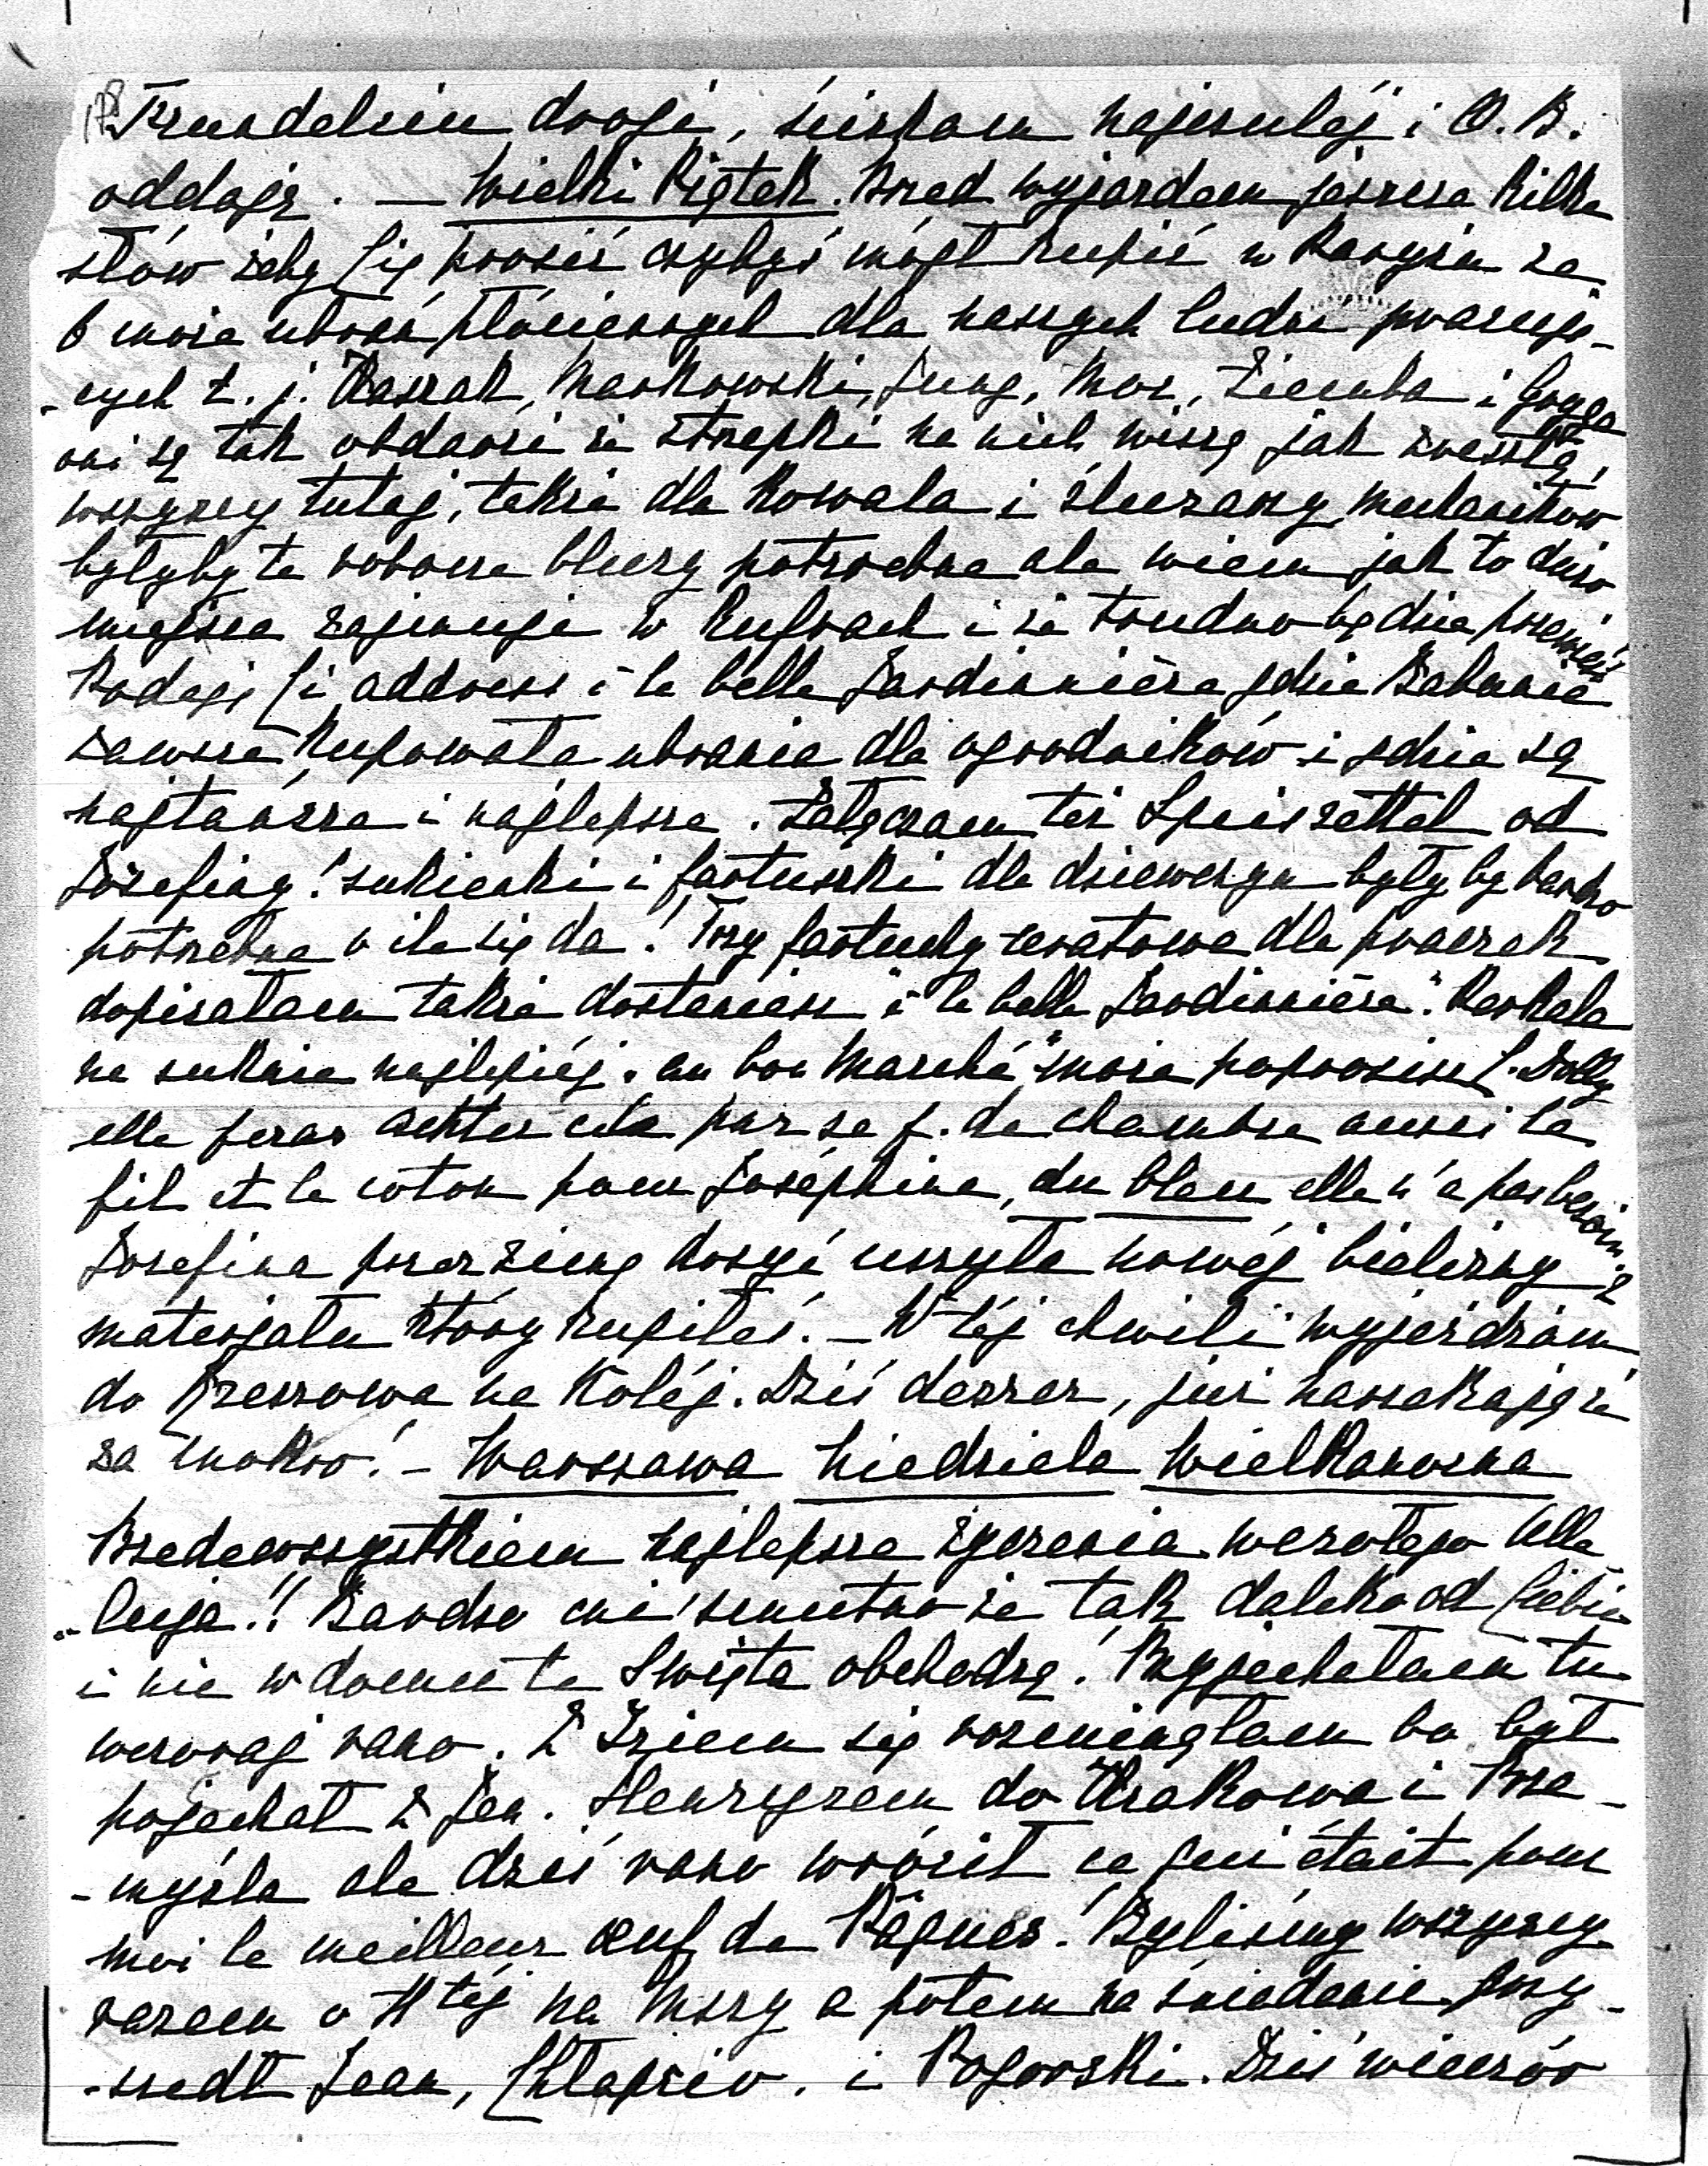 drogi, ściskam najczulej i O. B.
oddaję. — Wielki Piątek. Przed wyjazdem jeszcze kilka
słów żeby Cię prosić czybyś mógł kupić w Paryżu ze
6 może ubrań płóciennych dla naszych ludzi pracują-
-cych t. j. Kaszak, Markowski, Jung, Mor, Ziemba i
oni są tak obdarci że strzępki na nich wiszą jak zresztą
wszyscy tutaj, także dla Kowala i ślusarzy, mechaników
byłyby te robocze bluzy potrzebne ale wiem jak to dużo
miejsca zajmuje w kufrach i że trudno będzie przewieść
Podaję Ci address à la belle Jardinière gdzie Babunia
zawsze kupowała ubrania dla ogrodników i gdzie są
najtańsze i najlepsze. Załączam też Speiszettel od
Józefiny! sukienki i fartuszki dla dziewczyn byłyby bardzo
potrzebne o ile się da! Trzy fartuchy ceratowe dla praczek
dopisałam także dostaniesz "à la belle Jardinière". Perkale
na suknie najlepiej "au bon Marché" może poprosisz C. Dolly
elle feras achter cela par sa f. de chambre aussi le
fil et le coton pour Joséphine, du bleu elle n'a pas besoin
Josefina przez zimę dosyć uszyła nowéj bielizny z
materjału który kupiłeś. — W téj chwili wyjeżdżam
do Rzeszowa na Koléj. Dziś deszcz, już narzekają że
za mokro! — Warszawa Niedziela Wielkanocna
Przedewszystkiem najlepsze życzenia wesołego Alle-
-luja!! Bardzo mi smutno że tak daleko od Ciebie
i nie w domu te Swięta obchodzę! Przyjechałam tu
wczoraj rano. Z Iziem się rozminęłam bo był
pojechał z Jen. Henrysem do Krakowa i Prze-
-myśla ale dziś rano wrócił ce qui était pour
moi le meilleur œuf de Pâques! Byliśmy wszyscy
razem o 11téj na Mszy a potem na śniadanie przy-
-szedł Jean, Chłapow. i Pogorski. Dziś wieczór